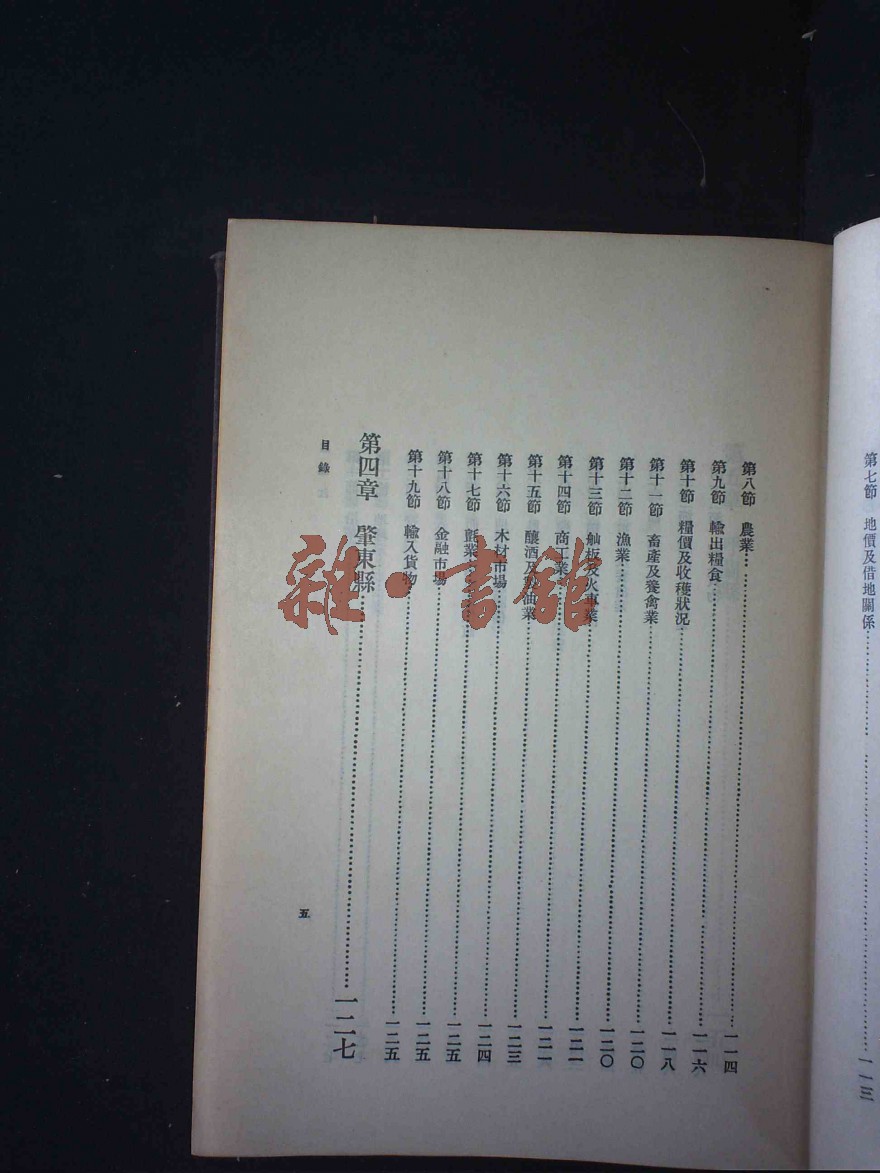 第七節 地價及借地關係……………一一三
第八節 農業……………一一四
第九節 輸出糧食……………一一六
第十節 糧價及收穫狀況……………一一八
第十一節 畜產及養禽業……………一二〇
第十二節 漁業……………一二〇
第十三節 舢板及火車業……………一二一
第十四節 商工業……………一二一
第十五節 釀酒及油業……………一二三
第十六節 木材市場……………一二四
第十七節 氈業……………一二五
第十八節 金融市場……………一二五
第十九節 輸入貨物……………一二五
第四章 肇東縣……………一二七
目錄
五
雜·書館